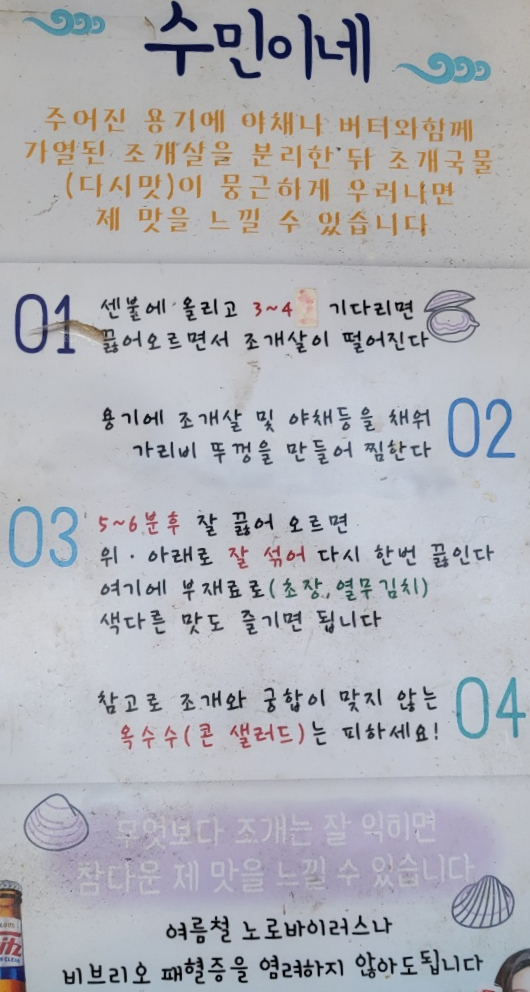 수민이네
주어진 용기에 야채나 버터와함께
가열된 조개살을 분리한 뒤 조개국물
(다시맛)이 뭉근하게 우러나면
제 맛을 느낄 수 있습니다
01
센불에 올리고 3~4 기다리면
끓어오르면서 조개살이 떨어진다
02
용기에 조개살 및 야채등을 채워
가리비 뚜껑을 만들어 찜한다
03
5~6분후 잘 끓어 오르면
위·아래로 잘 섞어 다시 한번 끓인다
여기에 부재료로(초장,열무김치)
색다른 맛도 즐기면 됩니다
04
참고로 조개와 궁합이 맞지 않는
옥수수(콘 샐러드)는 피하세요!
무엇보다 조개는 잘 익히면
참다운 제 맛을 느낄 수 있습니다
여름철 노로바이러스나
비브리오 패혈증을 염려하지 않아도됩니다